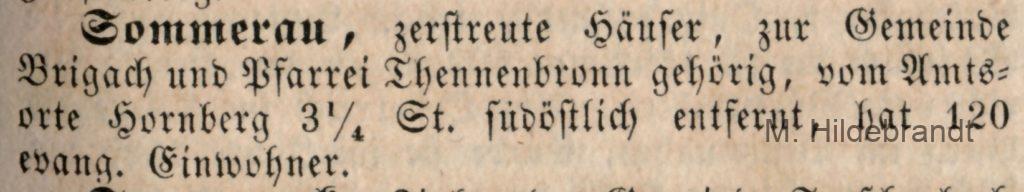 Sommerau, zerstreute Häuser, zur Gemeinde
Brigach und Pfarrei Thennenbronn gehörig, vom Amts-
orte Hornberg 3 1/4 St. südöstlich entfernt, hat 120
evang. Einwohner.
M. Hildebrandt